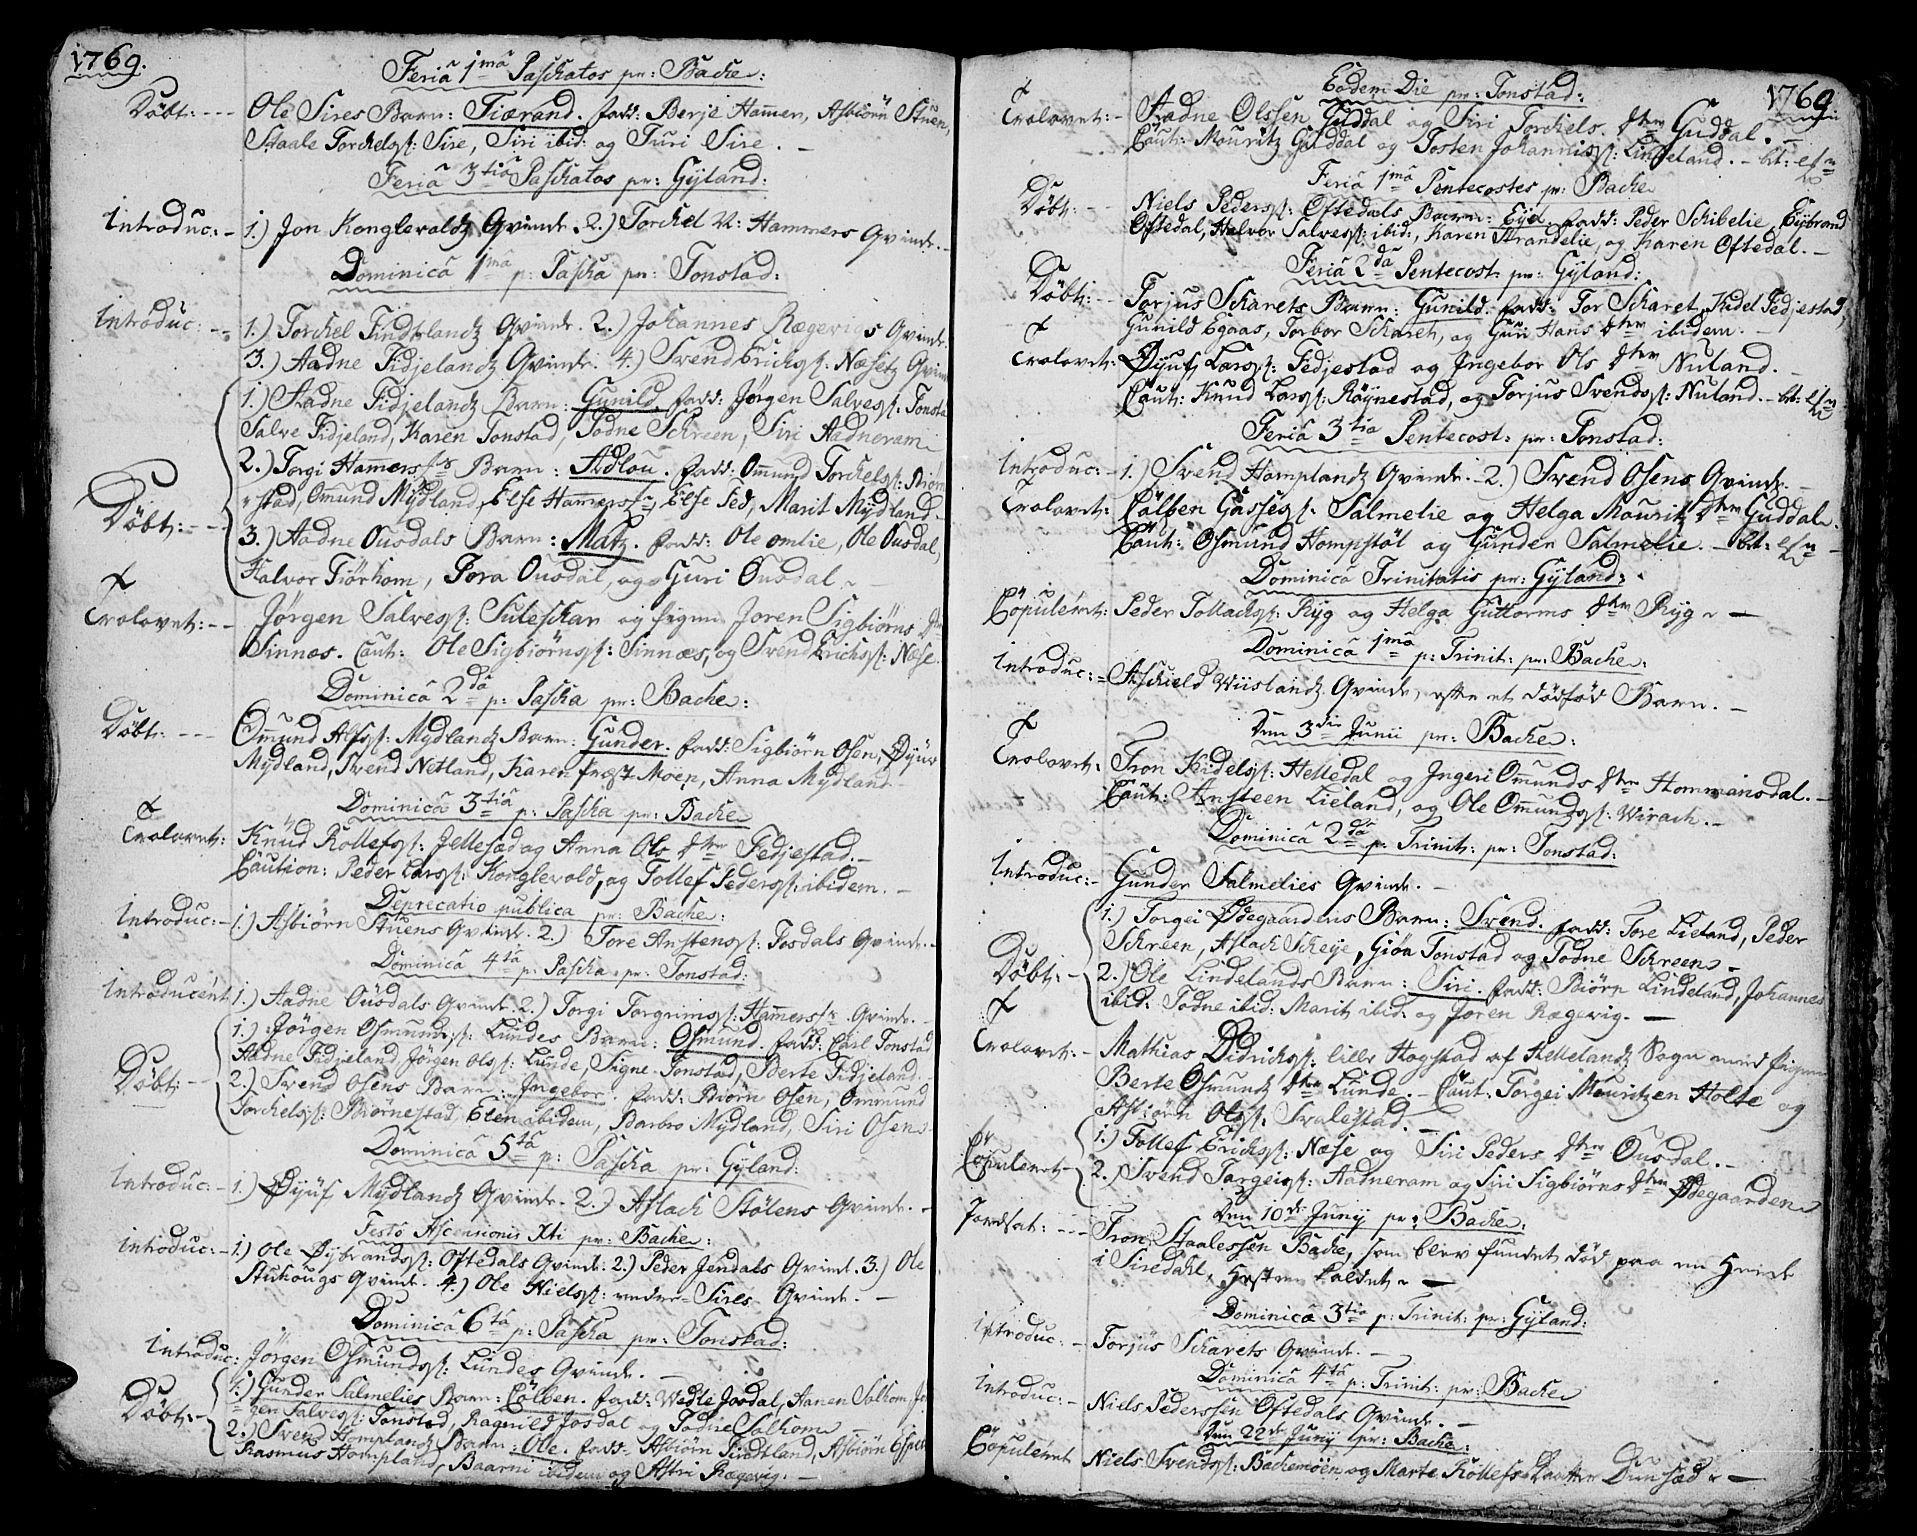 1769.
Feria 1ma Paschatos pr: Backe:
Döbt: --- Ole Sires Barn: Tiærand. fadd: Berje Hamen, Asbiörn Stuen,
Staale Torchelss: Sire, Siri ibid: og Turi Sire. -
Feria 3tia Paschatos pr: Gyland:
Introduc: - 1.) Jon Konglevoldz Qvinde. 2.) Torchel N: Hammers Qvinde.
Dominica 1ma p: Pascha pr: Tonstad:
Introduc: -- 1.) Torchel Findtlandz Qvinde. 2.) Johannes Rægevigs Qvinde.
3.) Aadne Fidjelandz Qvinde. 4.) Svend Erichss: Næsetz Qvinde
1.) Aadne Fidjelandz Barn: Gunild. fadd: Jörgen Salvess: Tonsta
Salve Fidjeland, Karen Tonstad, Todne Schreen, Siri Aadneram
2.) Torgi Hamers Barn: Adlou. fadd: Omund Torchelss: Biör
stad, Omund Mydland, Else Hamers, Else Fed, Marit Mydland.
Döbt: -- 3.) Aadne Ousdals Barn: Matz. fadd: Ole Omlie, Ole Ousdal,
Halvor Tiörhom, Tora Ousdal, og Guri Ousdal -
Trolovet: -- Jörgen Salvess: Suleschar og Pigen Joren Sigbiörns D
Sinnæs. Caut: Ole Sigbiörnss: Sinnæs, og Svend Erichss: Næse.
Dominica 2da p: Pascha pr: Backe:
Döbt: --- Omund Alfss: Mydlandz Barn: Gunder. fadd: Sigbiörn Osen, Öyuv
Mydland, Svend Netland, Karen Moen, Anna Mydland
Dominica 3tia p: Pascha pr: Backe
Trolovet: Knud Rollefss: Jellesad og Anna Ols Dtter Fedjestad. -
Caution: Peder Larss: Konglevold, og Tollef Pederss: ibidem. -
Deprecatio publica pr: Backe:
Introduc: - 1.) Asbiörn Stuens Qvinde. 2.) Tore Anstenss: Josdals Qvinde.
Dominica 4ta p: Pascha pr: Tonstad:
Introducent 1.) Aadne Ousdals Qvinde. 2.) Torgi Torgrimss: Hamers Qvinde. -
1.) Jörgen Osmundss: Lundes Barn: Osmund. fadd: Carl Tonstad
Aadne Fidjeland, Jörgen Olss: Lunde, Signe Tonstad, Berte Fidjeland.
Döbt: -- 2.) Svend Osens Barn: Ingebor. fadd: Biörn Osen, Ommund
Torchelss: Biörnestad, Elen ibidem, Barbro Mydland, Siri Osens
Dominica 5ta p: Pascha pr: Gyland:
Introduc: - 1.) Öyuf Mydlandz Qvinde. 2.) Aslach Stölens Qvinde. -
Festo Ascensionis Xti pr: Backe:
Introduc: - 1.) Ole Öybrandss: Oftedals Qvinde. 2.) Peder Jendals Qvinde. 3.) Ole
Stuhougs Qvinde. 4.) Ole Nielss: nedre-Sires Qvinde. -
Dominica 6ta p: Pascha pr: Tonstad:
Introduc: Jörgen Osmundss: Lundes Qvinde. -
1.) Gunder Salmelies Barn: Cölben. fadd: Wedle Josdal, Hanen Salhom, Jör
Döbt: - gen Salvess: Tonstad, Ragnild Josdal og Todne Salhom
2.) Svend Homplandz Barn: Ole. fadd: Asbiörn Findtland, Asbiörn Espet
Rasmus Hompland, Baarni ibidem og Astri Rægevig. -
1769.
Eodem Die pr: Tonstad:
Trolovet: - Aadne Olssen Guddal og Siri Torchels Dtter Guddal. -
Caut: Mouritz Guddal og Tosten Johanniss: Lindeland. -
Feria 1ma Pentecostes pr: Backe
Döbt: -- Niels Pederss: Oftedals Barn: Eja. fadd: Peder Schibelie, Eybrand
Oftedal, Halvor Salvess: ibid:, Karen Strandelie, og Karen Oftedal. -
Feria 2da Pentecost: pr: Gyland:
Döbt: -- Torjus Scharets Barn: Gunild. fadd: Tor Scharet, Kidel Fedjestad,
Gunild Egaas, Torbor Scharet, og Guri Hans Dtter ibidem. -
Trolovet: Öyuf Larss: Fedjestad og Ingebor Ols Dtter Nuland. -
Caut: Knud Larss: Röynestad, og Torjus Svendss: Nuland. -
Feria 3tia Pentecost: pr: Tonstad:
Introduc: - 1.) Svend Homplandz Qvinde. - 2.) Svend Osens Qvinde. -
Trolovet: Cölben Gasses: Salmelie og Helga Mouritz Dtter Guddal.
Caut: Osmund Hompstöl og Gunder Salmelie. -
Dominica Trinitatis pr: Gyland:
Copuleret: Peder Tollachss: Ryg og Helga Guttorms Dtter Ryg -
Dominica 1ma p: Trinit: pr: Backe:
Introduc: = Aschield Wiislandz Qvinde, efter et dödföd Barn. -
Den 3die Junii pr: Backe:
Trolovet: Tron Kidelss: Helledal og Ingeri Omunds Dtter Hommansdal. -
Caut: Ansteen Lieland, og Ole Omundss: Wirach. -
Dominica 2da p: Trinit: pr: Tonstad:
Introduc: - Gunder Salmelies Qvinde. -
1.) Torgei Ödegaardens Barn: Svend. fadd: Tore Lieland, Peder
Schreen, Aslach Scheye, Giöa Tonstad og Todne Schreens -
Döbt: - 2.) Ole Lindelands Barn: Siri. fadd: Biörn Lindeland, Johannes
ibid: Todne ibid: Marit ibid: og Joren Rægevig. -
Trolovet: - Mathias Didrichss: lille Hogstad af Hellelandz Sogn med Pigen
Berte Osmundz Dtter Lunde. - Caut: Torgei Mouritzen Holte og
Asbiörn Olss: Svalestad. -
Copuleret 1.) Tollef Erichss: Næse og Siri Peders Dtter Ousdal. -
2.) Svend Torgeiss: Aadneram og Siri Sigbiörns Dtter Ödegaarden
Den 10de Junij pr: Backe:
Jordfæst: --- Tron Staalessen Backe, som blev funden död paa en Heede
i Siredahl, Hesten kaldet -
Dominica 3tia p: Trinit: pr: Gyland:
Introduc: - Torjus Scharets Qvinde. -
Dominica 4ta p: Trinit: pr: Backe
Introduc: - Niels Pederssen Oftedals Qvinde. -
Den 22de Junij pr: Backe:
Copuleret Niels Svendss: Backemöen og Marte Rollefs Daatter Dunsæd -